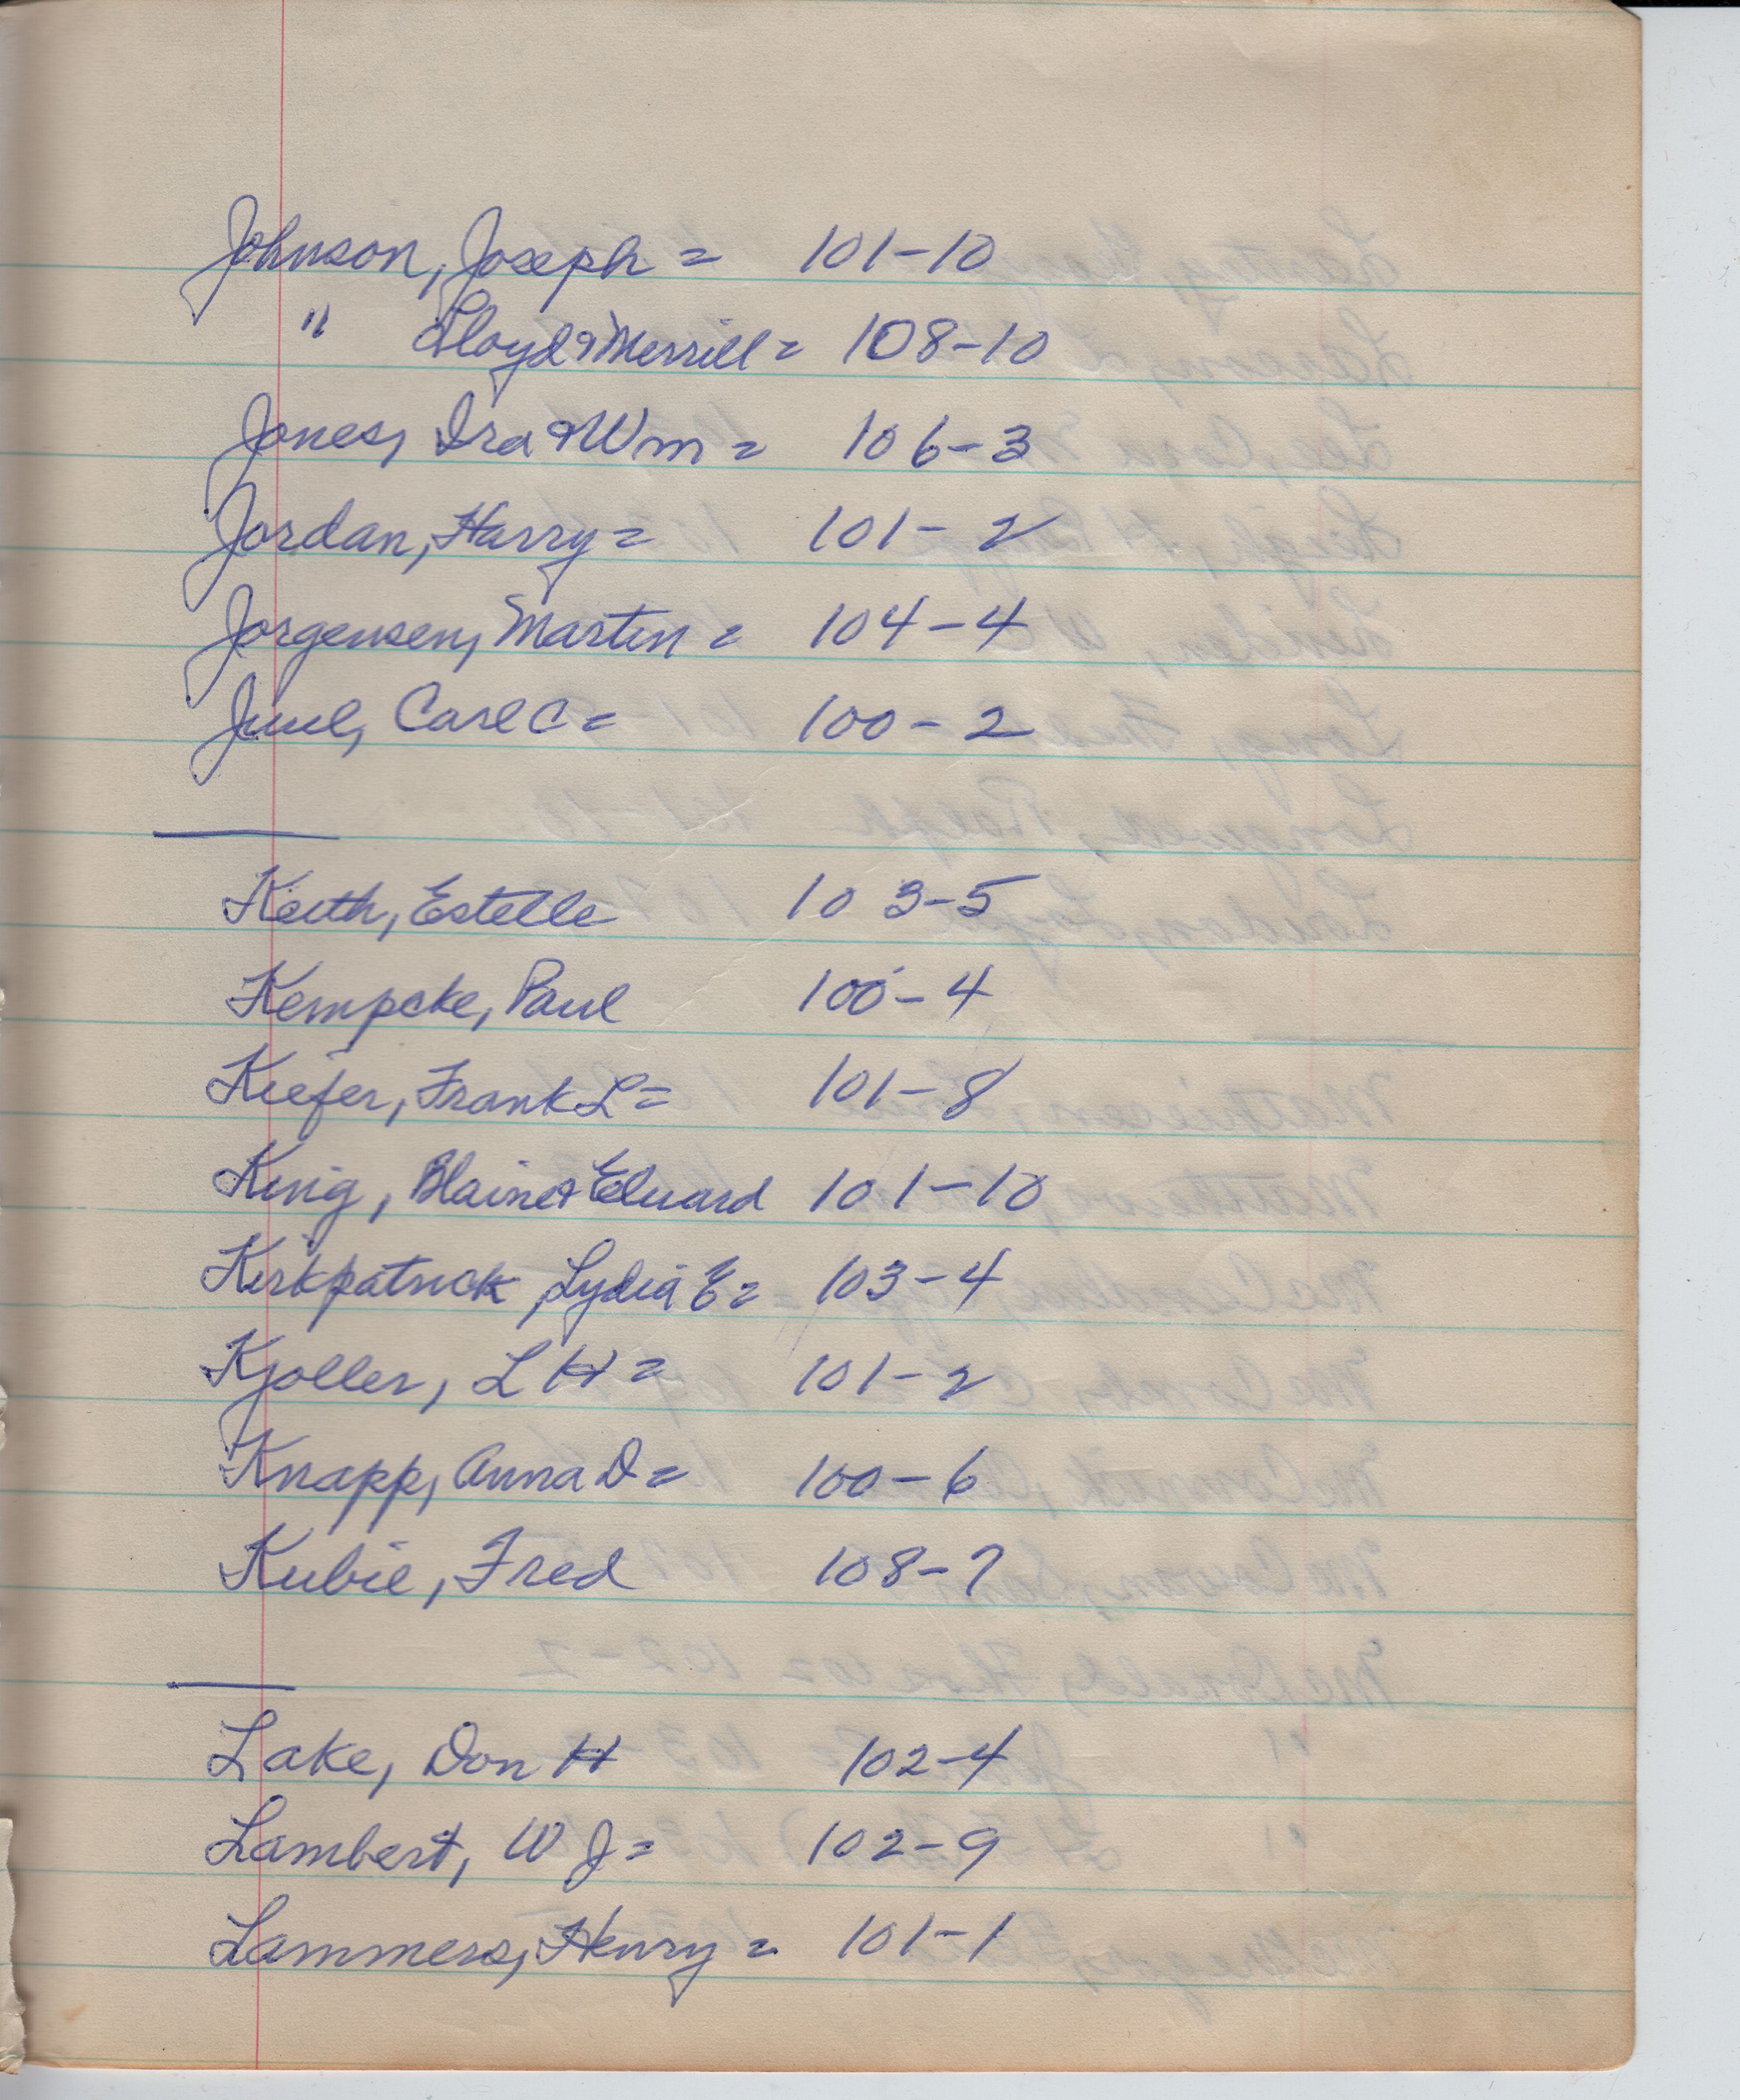 Johnson, Joseph = 101-10
" Lloyd & Merrill = 108-10
Jones, Ira & Wm = 106-3
Jordan, Harry = 101-2
Jorgensen, Martin = 104-4
Juul, Carl C = 100-2
Keith, Estelle 103-5
Kempcke, Paul 100-4
Kiefer, Frank L = 101-8
King, Blaine & Edward 101-10
Kirkpatrick, Lydia E = 103-4
Kjoller, L H = 101-2
Knapp, Anna D = 100-6
Kubie, Fred 108-7
Lake, Don H 102-4
Lambert, W J = 102-9
Lammers, Henry = 101-1